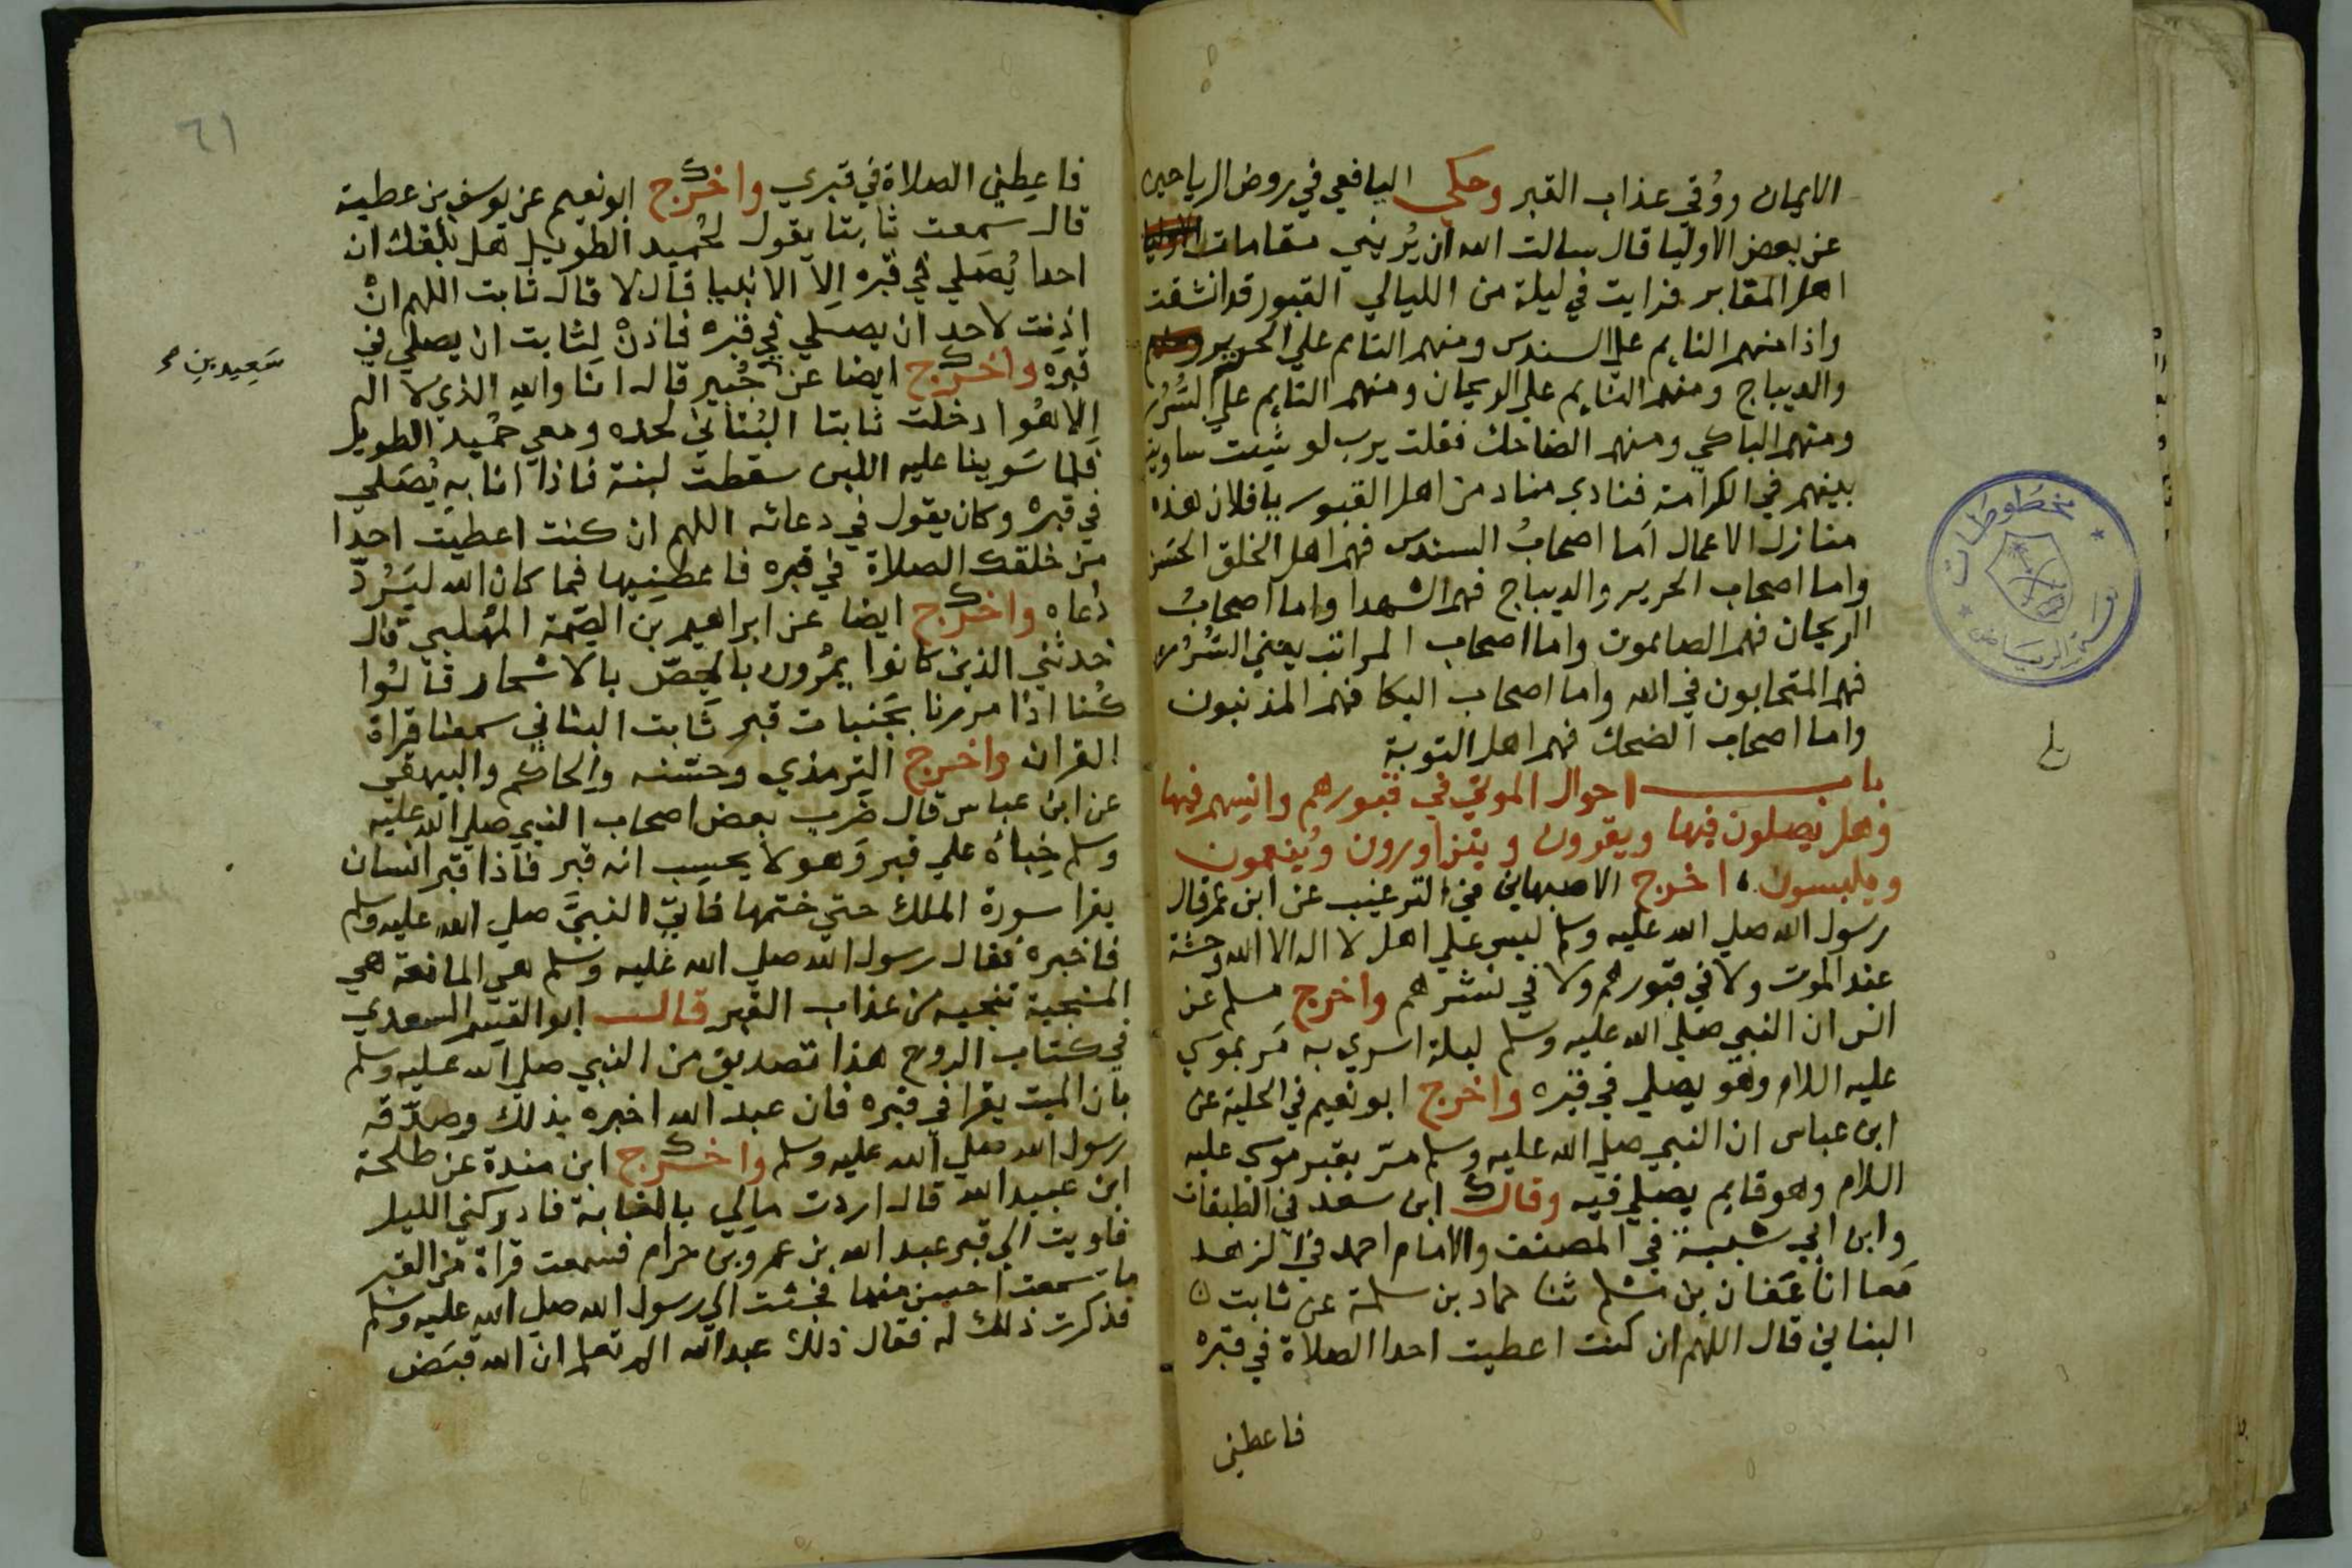 الايمان ووُقي عذاب القبر وحكي اليافعي في روض الرياحين
عن بعض الاوليا قال سالت الله ان يُريني مقامات
اهل المقابر فرايت في ليلة من الليالي القبور قد انشقت
واذا منهم النايم علي السندس ومنهم النايم علي الحرير
والديباج ومنهم النايم علي الريحان ومنهم النايم علي السُرُر
ومنهم الباكي ومنهم الضاحك فقلت يرب لو شيت ساويت
بينهم في الكرامة فنادي مناد من اهل القبور يا فلان هذه
منازل الاعمال اما اصحابُ السندس فهم اهل الخلق الحسن
واما اصحاب الحرير والديباج فهم الشهدا واما اصحابُ
الريحان فهم الصايمون واما اصحاب المراتب يعني السُرُر
فهم المتحابون في الله واما اصحاب البكا فهم المذنبون
واما اصحاب الضحك فهم اهل التوبة
باب احوال الموتي في قبورهم وانيسهم فيها
وهل يصلون فيها ويقرون ويتزاورون ويُنعمون
ويلبسون اخرج الاصبهاني في الترغيب عن ابن عمر قال
رسول الله صلي الله عليه وسلم ليس علي اهل لا اله الا الله وحشة
عند الموت ولا في قبورهم ولا في نشرهم واخرج مسلم عن
انس ان النبي صلي الله عليه وسلم ليلة اسري به مَر بموسي
عليه السلام وهو يصلي في قبره واخرج ابو نعيم في الحلية عن
ابن عباس ان النبي صلي الله عليه وسلم مرّ بقبر موسي عليه
السلام وهو قايم يصلي فيه وقال ابن سعد في الطبقات
وابن ابي شيبة في المصنف والامام احمد في الزهد
مَعا انا عَفان بن مسلم ثنا حماد بن سلمة عن ثابت
البناني قال اللهم ان كنت اعطيت احدا الصلاة في قبره
فاعطني
٦١
فاعطني الصلاة في قبري واخرج ابو نعيم عن يوسف بن عطية
قال سمعت ثابتا يقول لحُميد الطويل هل بلغك ان
احدا يُصَلي في قبره اِلا الانبيا قال لا قال ثابت اللهم انْ
اذِنت لاحد ان يصلي في قبره فاذنْ لثابت ان يصلي في
قبره واخرج ايضا عن جُبير قال انا والله الذي لا اله
سَعِيد بن
اِلا هُوا دخلت ثابتا البُناني لحده ومعي حُميد الطويل
فلما سَوينا عليه اللبن سقطت لبنة فاذا انا به يُصَلي
في قبره وكان يقول في دعائه اللهم ان كنت اعطيت احدا
من خلقك الصلاة في قبره فاعطنيها فما كان الله ليَرُدّ
دُعاه واخرج ايضا عن ابراهيم بن الصِّمة المُهلبي قال
حدثني الذين كانوا يمُرّون بالجِصّ بالاسحار قالُوا
كُنا اذا مررنا بجَنبات قبر ثَابت البناني سمعنا قراة
القران واخرج الترمذي وحسّنه والحاكم والبيهقي
عن ابن عباس قال ضَرب بعض اصحاب النبي صلي الله عليه
وسلم خِباهُ علي قبر وَهو لا يحسِب انه قبر فاذا قبر انسان
يقرا سورة الملك حتي ختمها فاتيّ النبيَّ صلي الله عليه وسلم
فاخبره فقال رسول الله صلي الله عليه وسلم هي المانعة هي
المنجية تنجيه من عذاب القبر قال ابو القسِم السعدي
في كتاب الروح هذا تصديق من النبي صلي الله عليه وسلم
بان الميت يقرا في قبره فان عبد الله اخبره بذلك وصدّقه
رسول الله صلي الله عليه وسلم واخرج ابن مندة عن طلحة
ابن عبيد الله قال اردت مالي بالغابة فادركني الليل
فاويت الي قبر عبد الله بن عمرو بن حرام فسمعت قراة من القبر
ما سمعت احسن منها فجئت الي رسول الله صلي الله عليه وسلم
فذكرت ذلك له فقال ذلك عبد الله الم تعلم ان الله قبَض